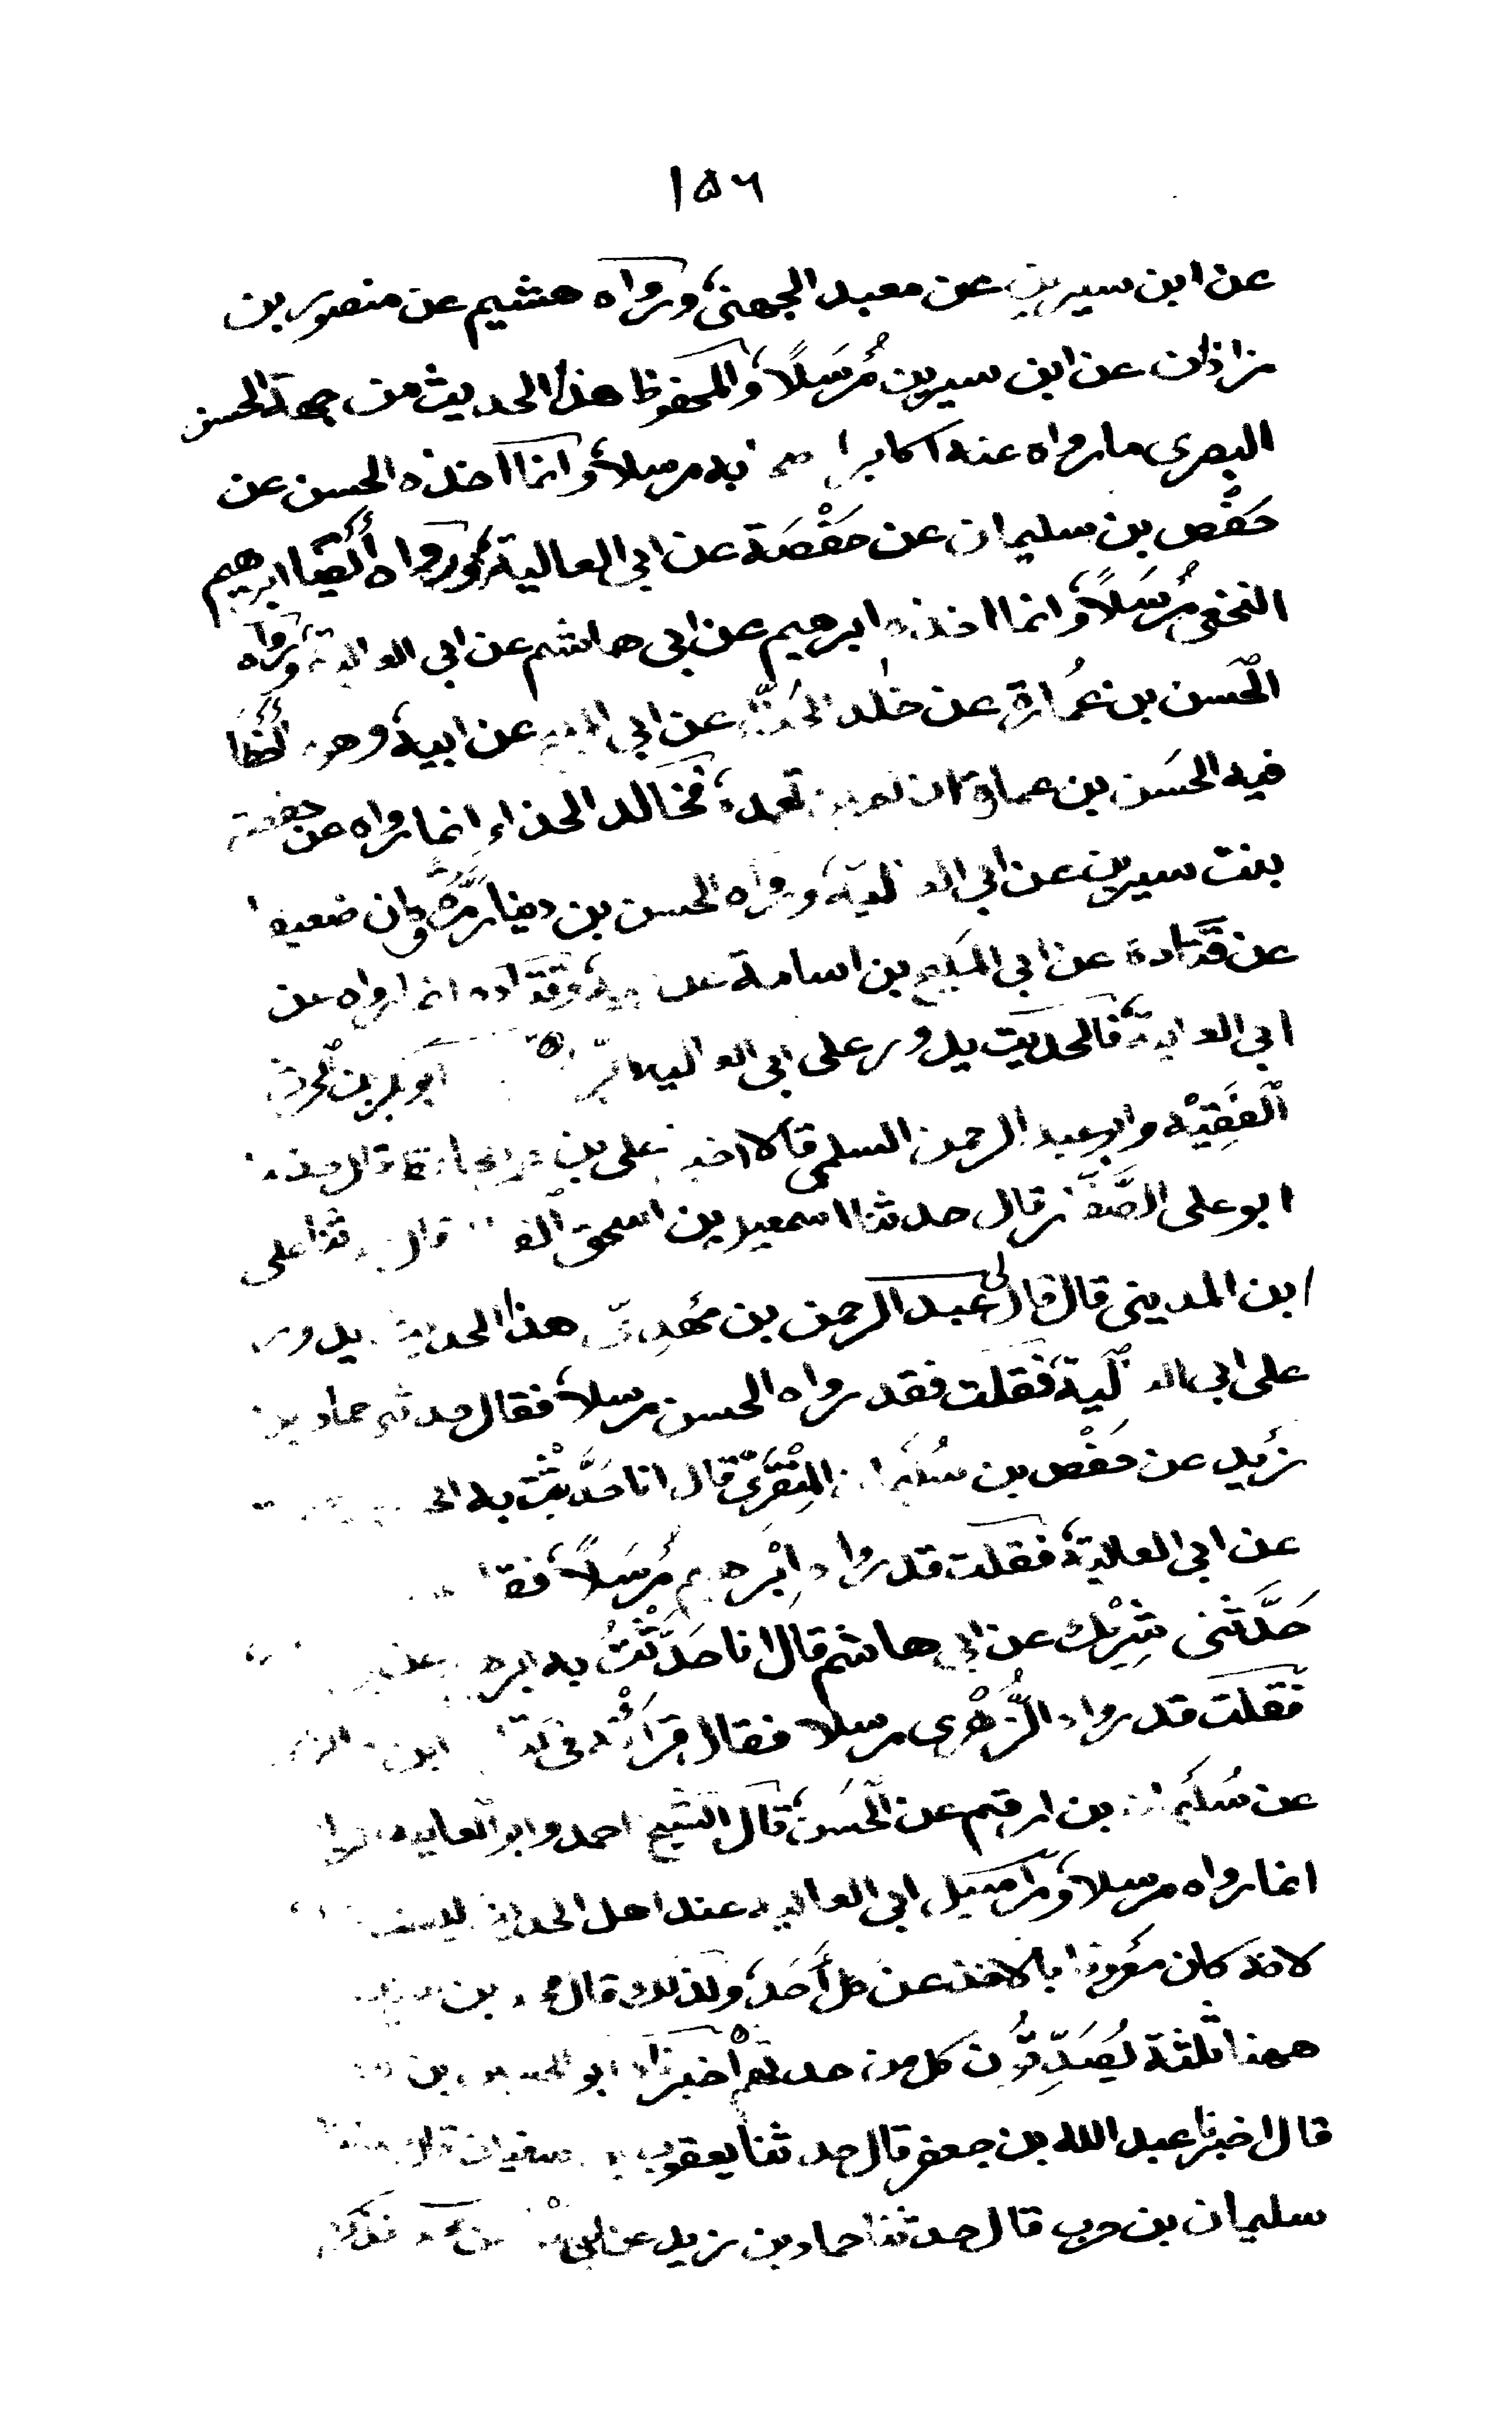 ١٥٦
عن ابن سيرين عن معبد الجهني ورواه هشيم عن منصور بن
زاذان عن ابن سيرين مُرسَلًا والمحفوظ هذا الحديث من جهة الحسن
البصري ما رواه عنه اكابر به مرسلا وانما اخذه الحسن عن
حَفْص بن سليمان عن حَفْصَة عن ابي العالية ورواه أيضًا ابرهيم
النخعي مُرسَلًا وانما اخذه ابرهيم عن ابي هاشم عن ابي العالية ورواه
الحَسَن بن عُمارة عن خلد الحذاء عن ابي المليح عن ابيه وهو
فيه الحَسَن بن عمارة ان تعمده فخالد الحذاء انما رواه عن حفصة
بنت سيرين عن ابي العالية ورواه الحسن بن دينار وكان ضعيفا
عن قَتَادة عن ابي المَليح بن اسامة عن ابيه وقَتَادة انما رواه عن
ابي العالية فالحديث يدور على ابي العالية ابو بكر بن الحرث
الفَقِيْه وابو عبد الرحمن السلمي قالا اخبرنا علي بن قال حدثنا
ابو علي الصَّفَّار قال حدثنا اسمعيل بن اسحق قال ثنا علي
ابن المديني قال قال لي عبد الرحمن بن مَهْدِي هذا الحديث يدور
على ابي العالية فَقلت فقد رواه الحسن مرسلا فقال حدثني حماد بن
زَيد عن حَفْص بن سُلَيمان المِنْقَرِيّ قال انا حَدَّثْت به الحسن
عن ابي العالية فقلت قد رواه اِبْرهيم مُرسَلًا فقال
حَدَّثني شَرِيْك عن ابي هاشم قال انا حَدَّثْتُ به ابرهيم
فَقلت قد رواه الزُّهْرِي مرسلا فقال قَرَأْتُه في كتاب ابن اخي الزهري
عن سُلَيمان بن ارقم عن الحَسَن قال الشيخ احمد وابو العالية
انما رواه مرسلا ومراسيل ابي العالية عند اهل الحديث ليست
لانه كان معروفا بالاخذ عن كل أَحَد ولذلك قال محمد بن سيرين
ههنا ثلثة يُصَدِّقُون كل من حدثهم اخبرناه ابو الحسين بن
قال اخبرنا عبد الله بن جعفر قال حدثنا يعقوب بن سفيان قال حدثنا
سليمان بن حرب قال حدثنا حماد بن زيد عن